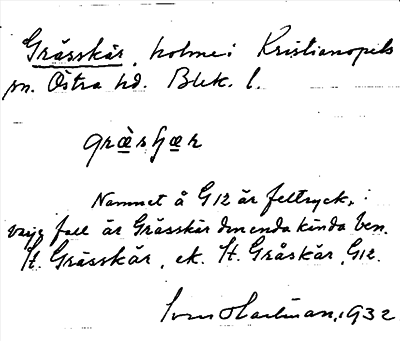 Grässkär, holme i Kristianopels
sn. Östra hd. Blek. l.
græ̀sʃær
Namnet å G12 är feltryck, i
varje fall är Grässkär den enda kända ben.
St. Grässkär, ek. St. Gråskär, G12.
Sven Hartman, 1932